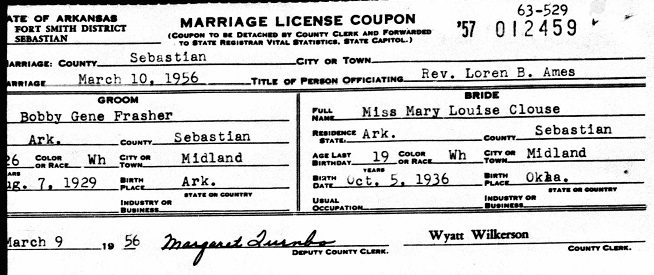 ATE OF ARKANSAS
FORT SMITH DISTRICT
SEBASTIAN
MARRIAGE LICENSE COUPON
(COUPON TO BE DETACHED BY COUNTY CLERK AND FORWARDED
TO STATE REGISTRAR VITAL STATISTICS, STATE CAPITOL.)
63-529
'57 012459
ARRIAGE: COUNTY Sebastian CITY OR TOWN
ARRIAGE March 10, 1956 TITLE OF PERSON OFFICIATING Rev. Loren B. Ames
GROOM
Bobby Gene Frasher
Ark. COUNTY Sebastian
26 COLOR OR RACE Wh CITY OR TOWN Midland
EARS
ug. 7, 1929 BIRTH PLACE Ark.
STATE OR COUNTRY
INDUSTRY OR BUSINESS
BRIDE
FULL NAME Miss Mary Louise Clouse
RESIDENCE STATE: Ark. COUNTY Sebastian
AGE LAST BIRTHDAY 19 COLOR OR RACE Wh CITY OR TOWN Midland
YEARS
BIRTH DATE Oct. 5, 1936 BIRTH PLACE Okla.
STATE OR COUNTRY
USUAL OCCUPATION INDUSTRY OR BUSINESS
March 9 19 56 Margaret Turnbo Wyatt Wilkerson
DEPUTY COUNTY CLERK. COUNTY CLERK.